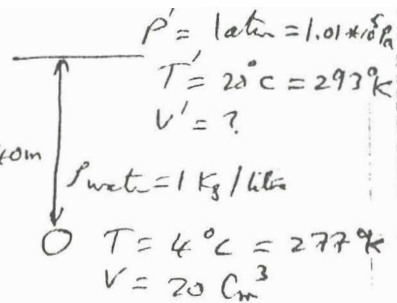 P' = 1atm = 1.01*10⁵Pa
T' = 20°C = 293°K
V' = ?
40m
ρwater = 1 Kg / litre
T = 4°C = 277°K
V = 20 Cm³